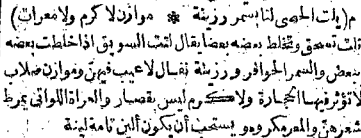 م(يلت الحصى لتا بسمر رزينة * موازن لا كزم ولا معرات)
تلت تسحق وتخلط بعضه بعضا يقال لتت السويق اذا خلطت بعضه
ببعض والسمر الحوافر ورزينة ثقال لا عيب فيهن وموازن صلاب
لا تؤثر فيها الحجارة ولا كزم ليس بقصار والمعراة اللواتي تمرط
شعرهن والمعر مكروه ويستحب أن يكون ألين تامة لينة